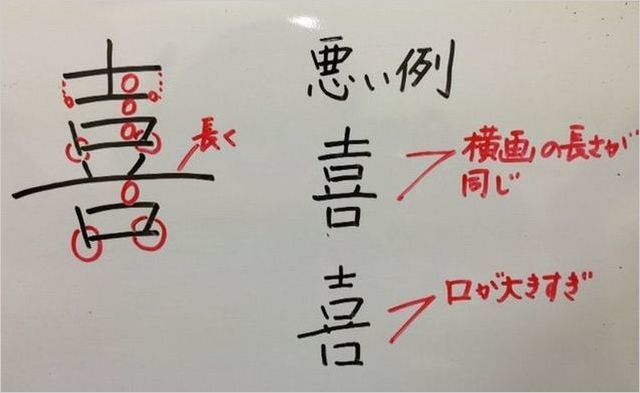 喜
長く
悪い例
喜
横画の長さが
同じ
喜
口が大きすぎ